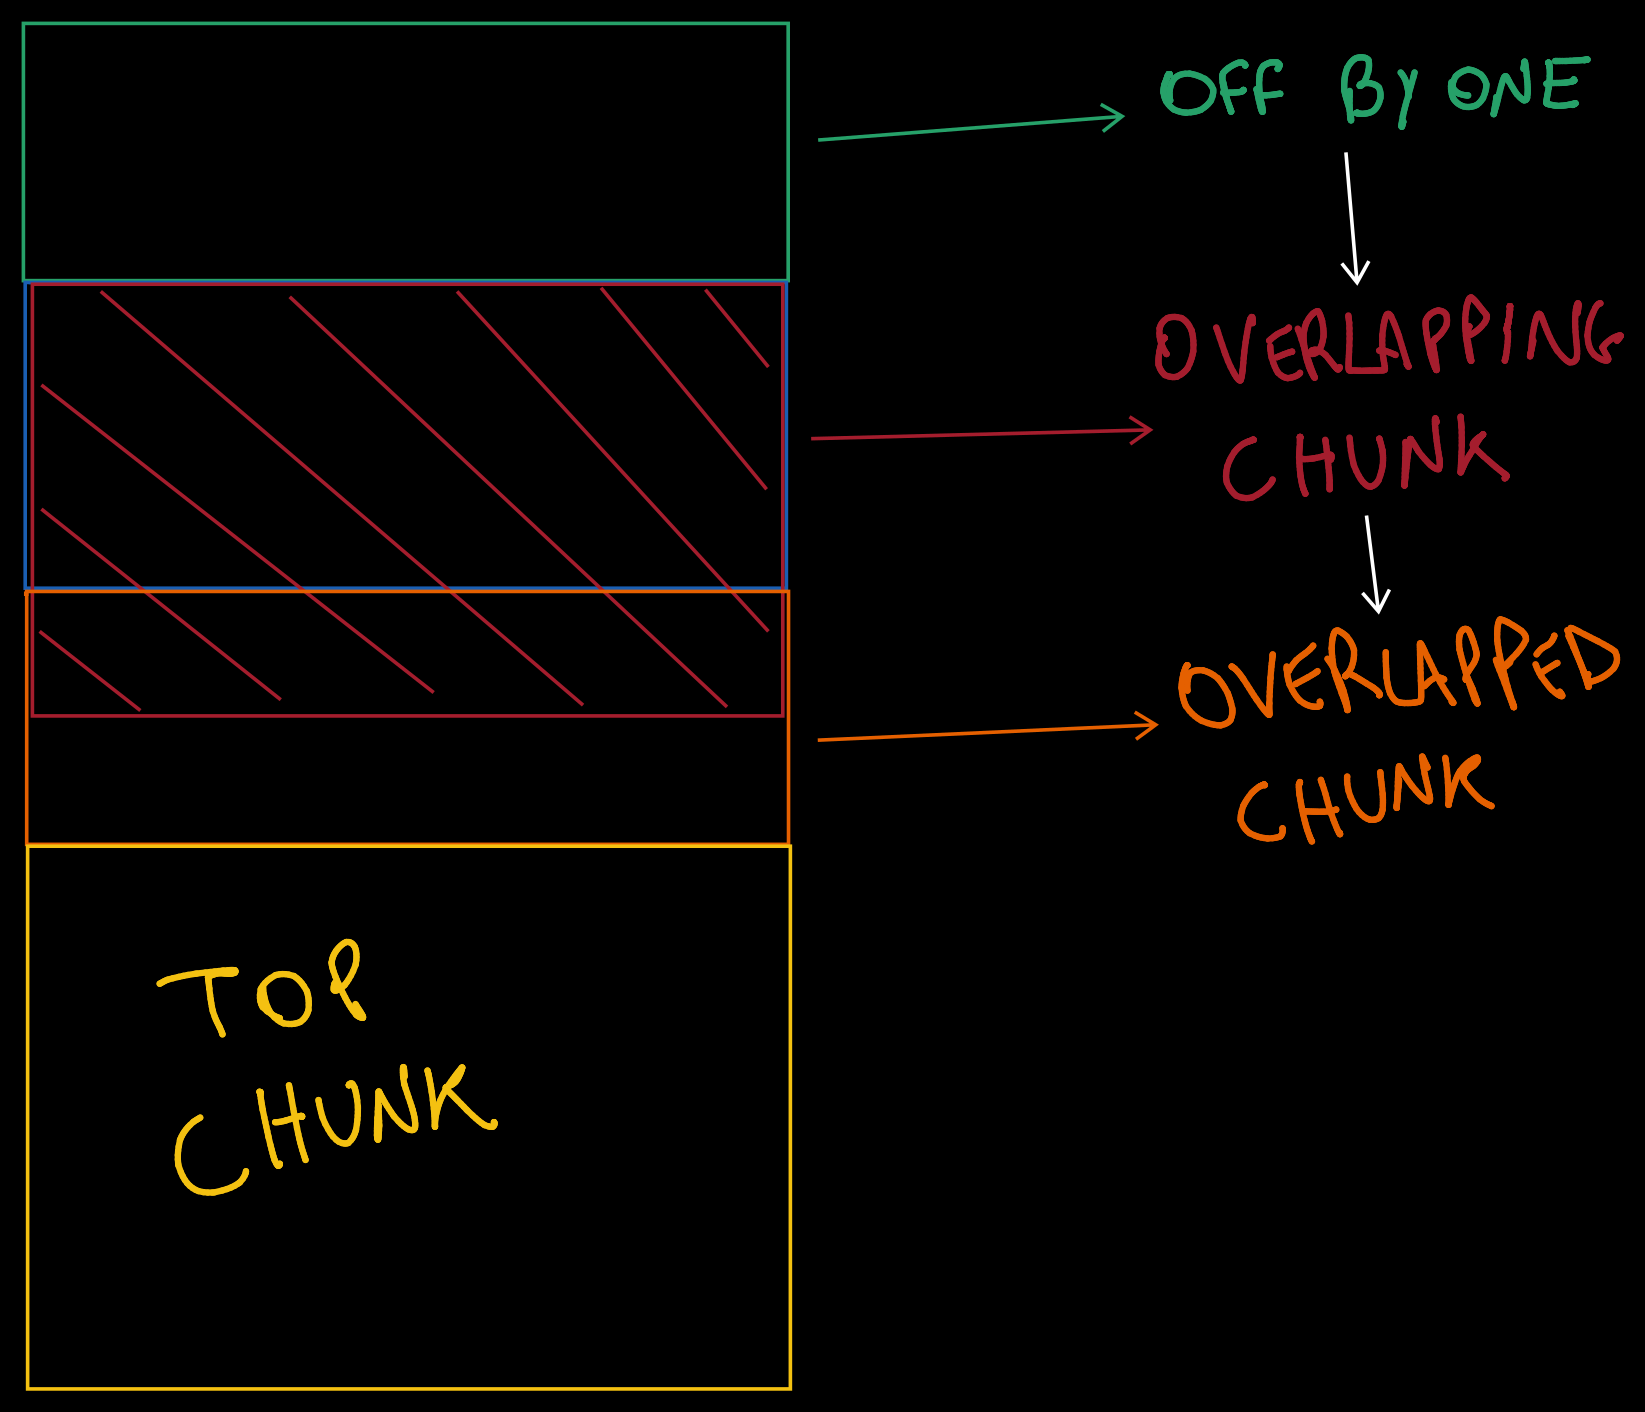 OFF BY ONE
OVERLAPPING
CHUNK
OVERLAPPED
CHUNK
TOP
CHUNK